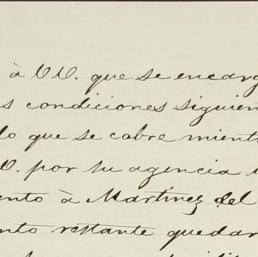 à VV. que se encarg
s condiciones siguien
lo que se cobre mient
D. por su agencia
ento à Martinez del
nto restante quedar